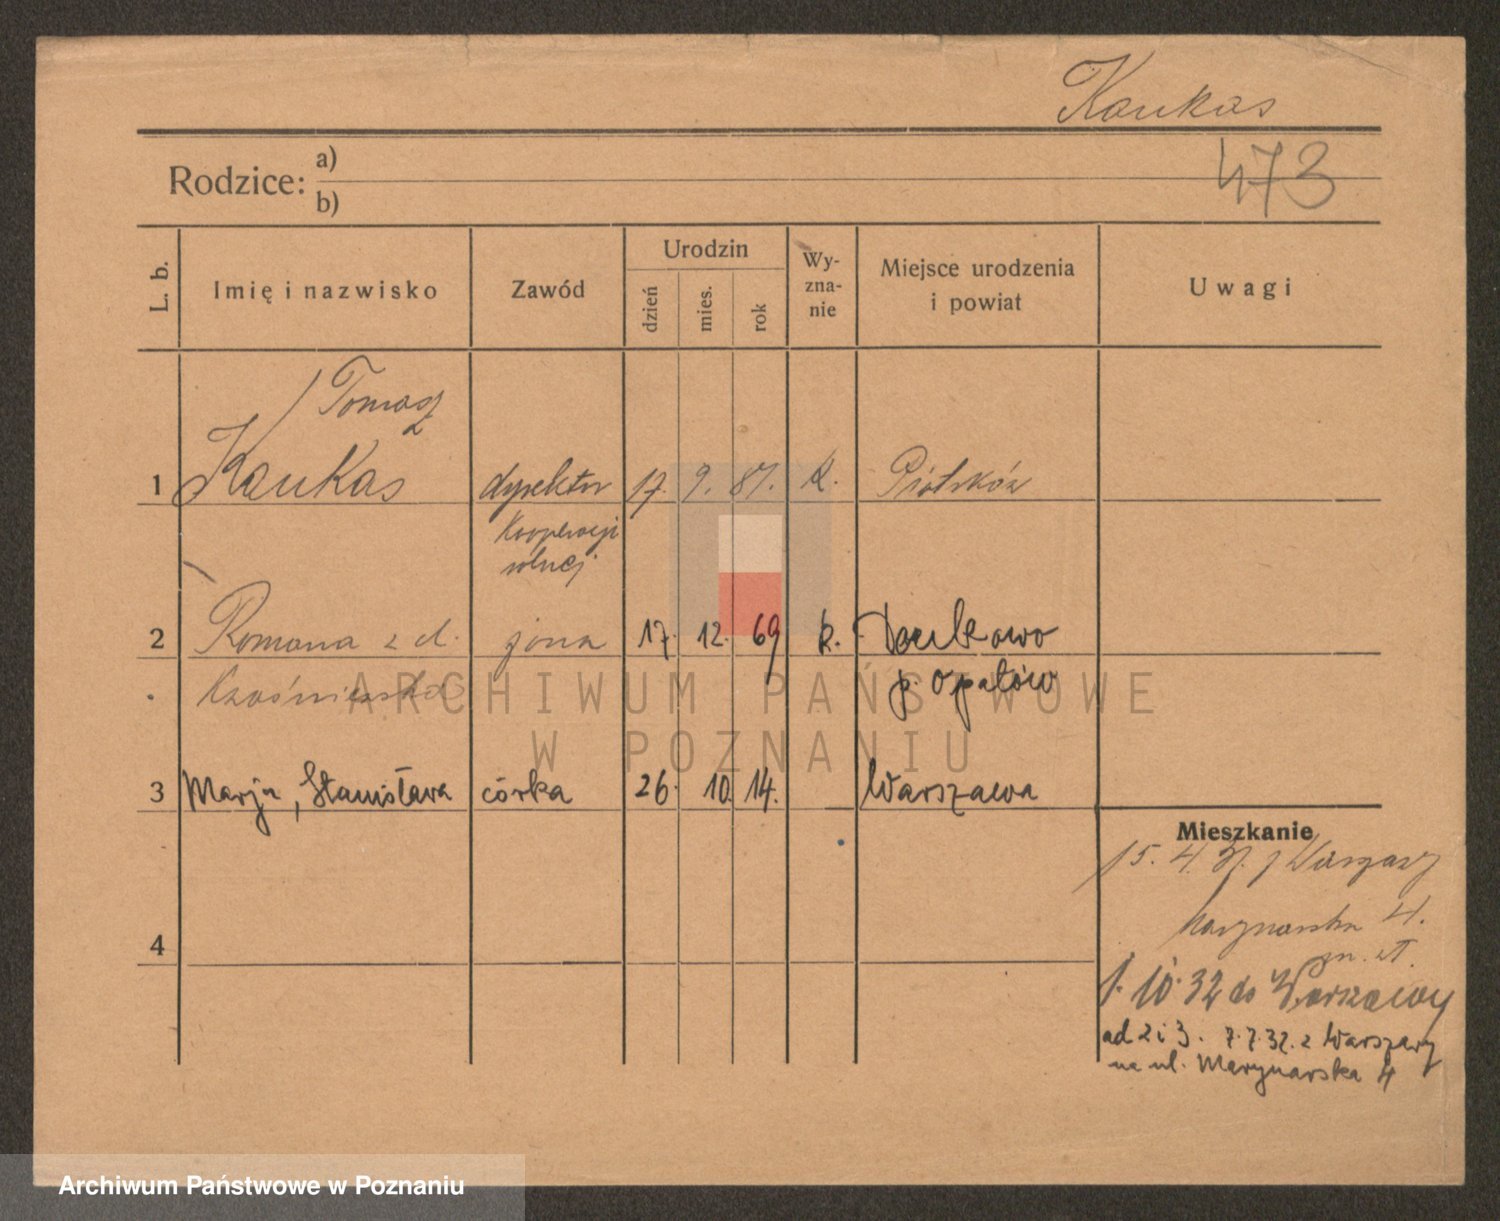 Kaukas
473
Rodzice: a)
b)
L. b. Imię i nazwisko Zawód Urodzin dzień mies. rok Wy-zna-nie Miejsce urodzenia i powiat Uwagi
Tomasz
1 Kaukas dyrektor 17. 9. 87. k. Piotrków
Kooperacji
rolnej
2 Romana z d. żona 17. 12. 69 k. Daukowo
p. Opatów
3 Marja, Stanisława córka 26. 10. 14. Warszawa
Mieszkanie
15. 4. 32. z Warszawy
Marynarska 4.
4
1. 10. 32 do Warszawy
ad 2 i 3. 7.7.32. z Warszawy
na ul. Marynarska 4
ARCHIWUM PAŃSTWOWE
W POZNANIU
Archiwum Państwowe w Poznaniu